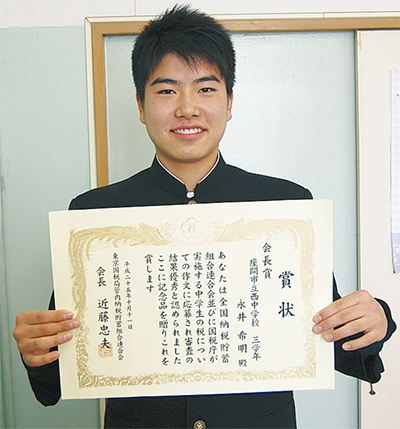 賞状
会長賞
座間市立西中学校 三学年
永井 希明 殿
あなたは全国納税貯蓄
組合連合会並びに国税庁が
実施する中学生の税につい
ての作文に応募され審査の
結果優秀と認められました
ここに記念品を贈りこれを
賞します
平成二十五年十月十一日
東京国税局管内納税貯蓄組合連合会
会長 近藤 忠夫